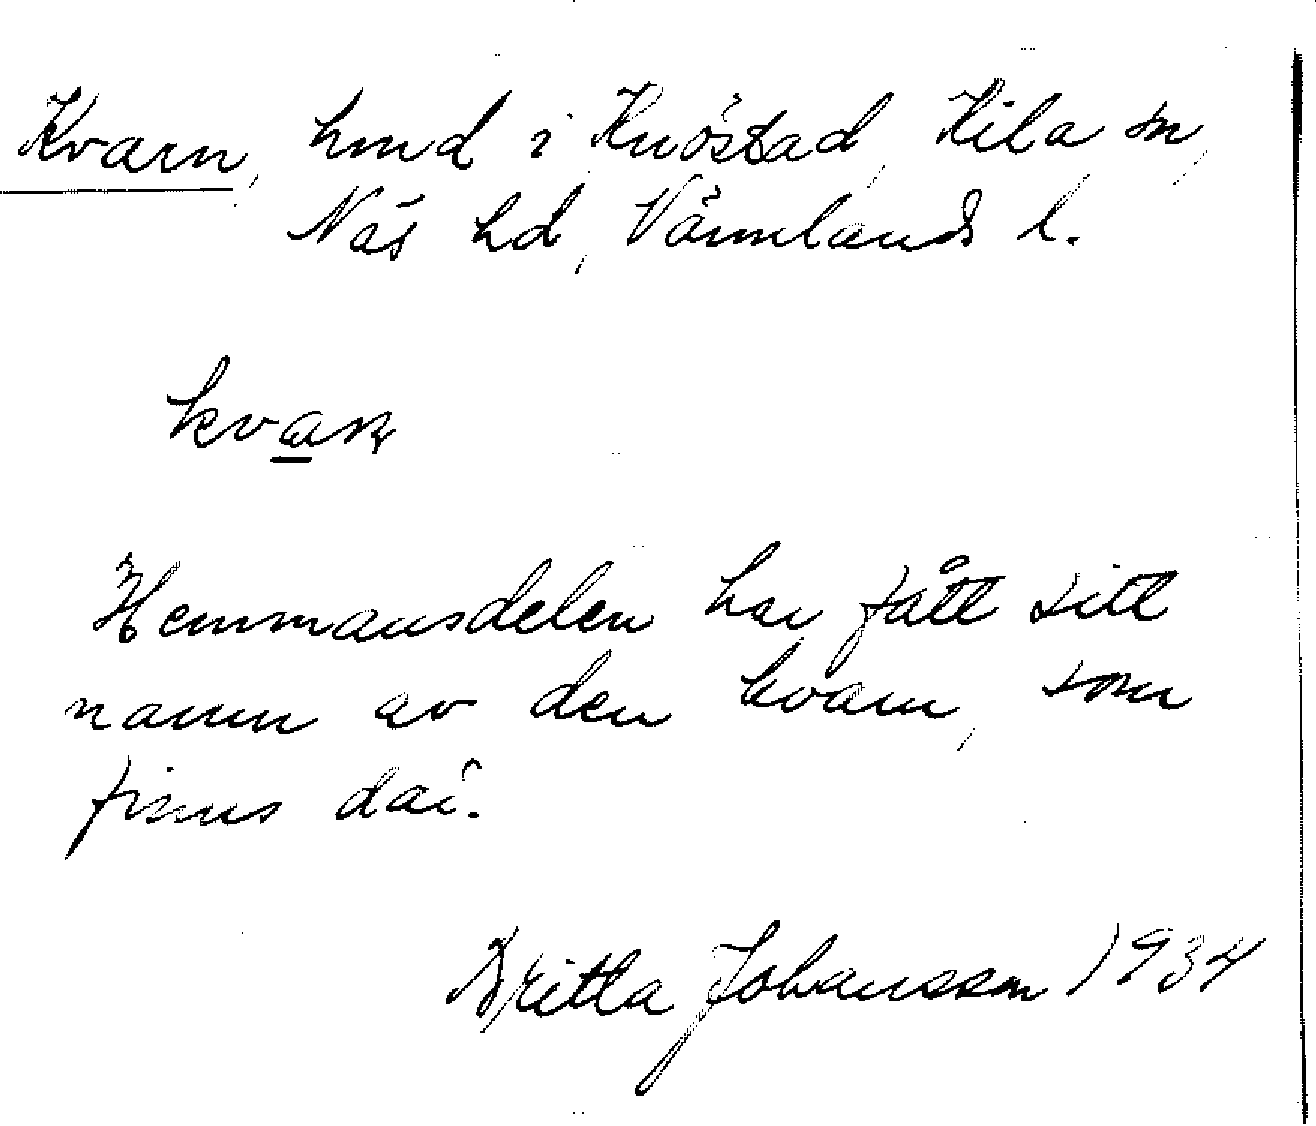 Kvarn, hmd i Knöstad, Kila sn,
Näs hd, Värmlands l.
Hemmansdelen har fått sitt
namn av den kvarn, som
finns där.
Britta Johansson 1934